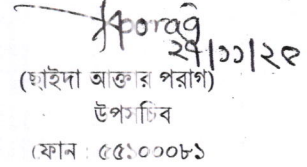 Aporag
২৭|১১|২৫
(ছাইদা আক্তার পরাগ)
উপসচিব
ফোন : ৫৫১০০০৮১